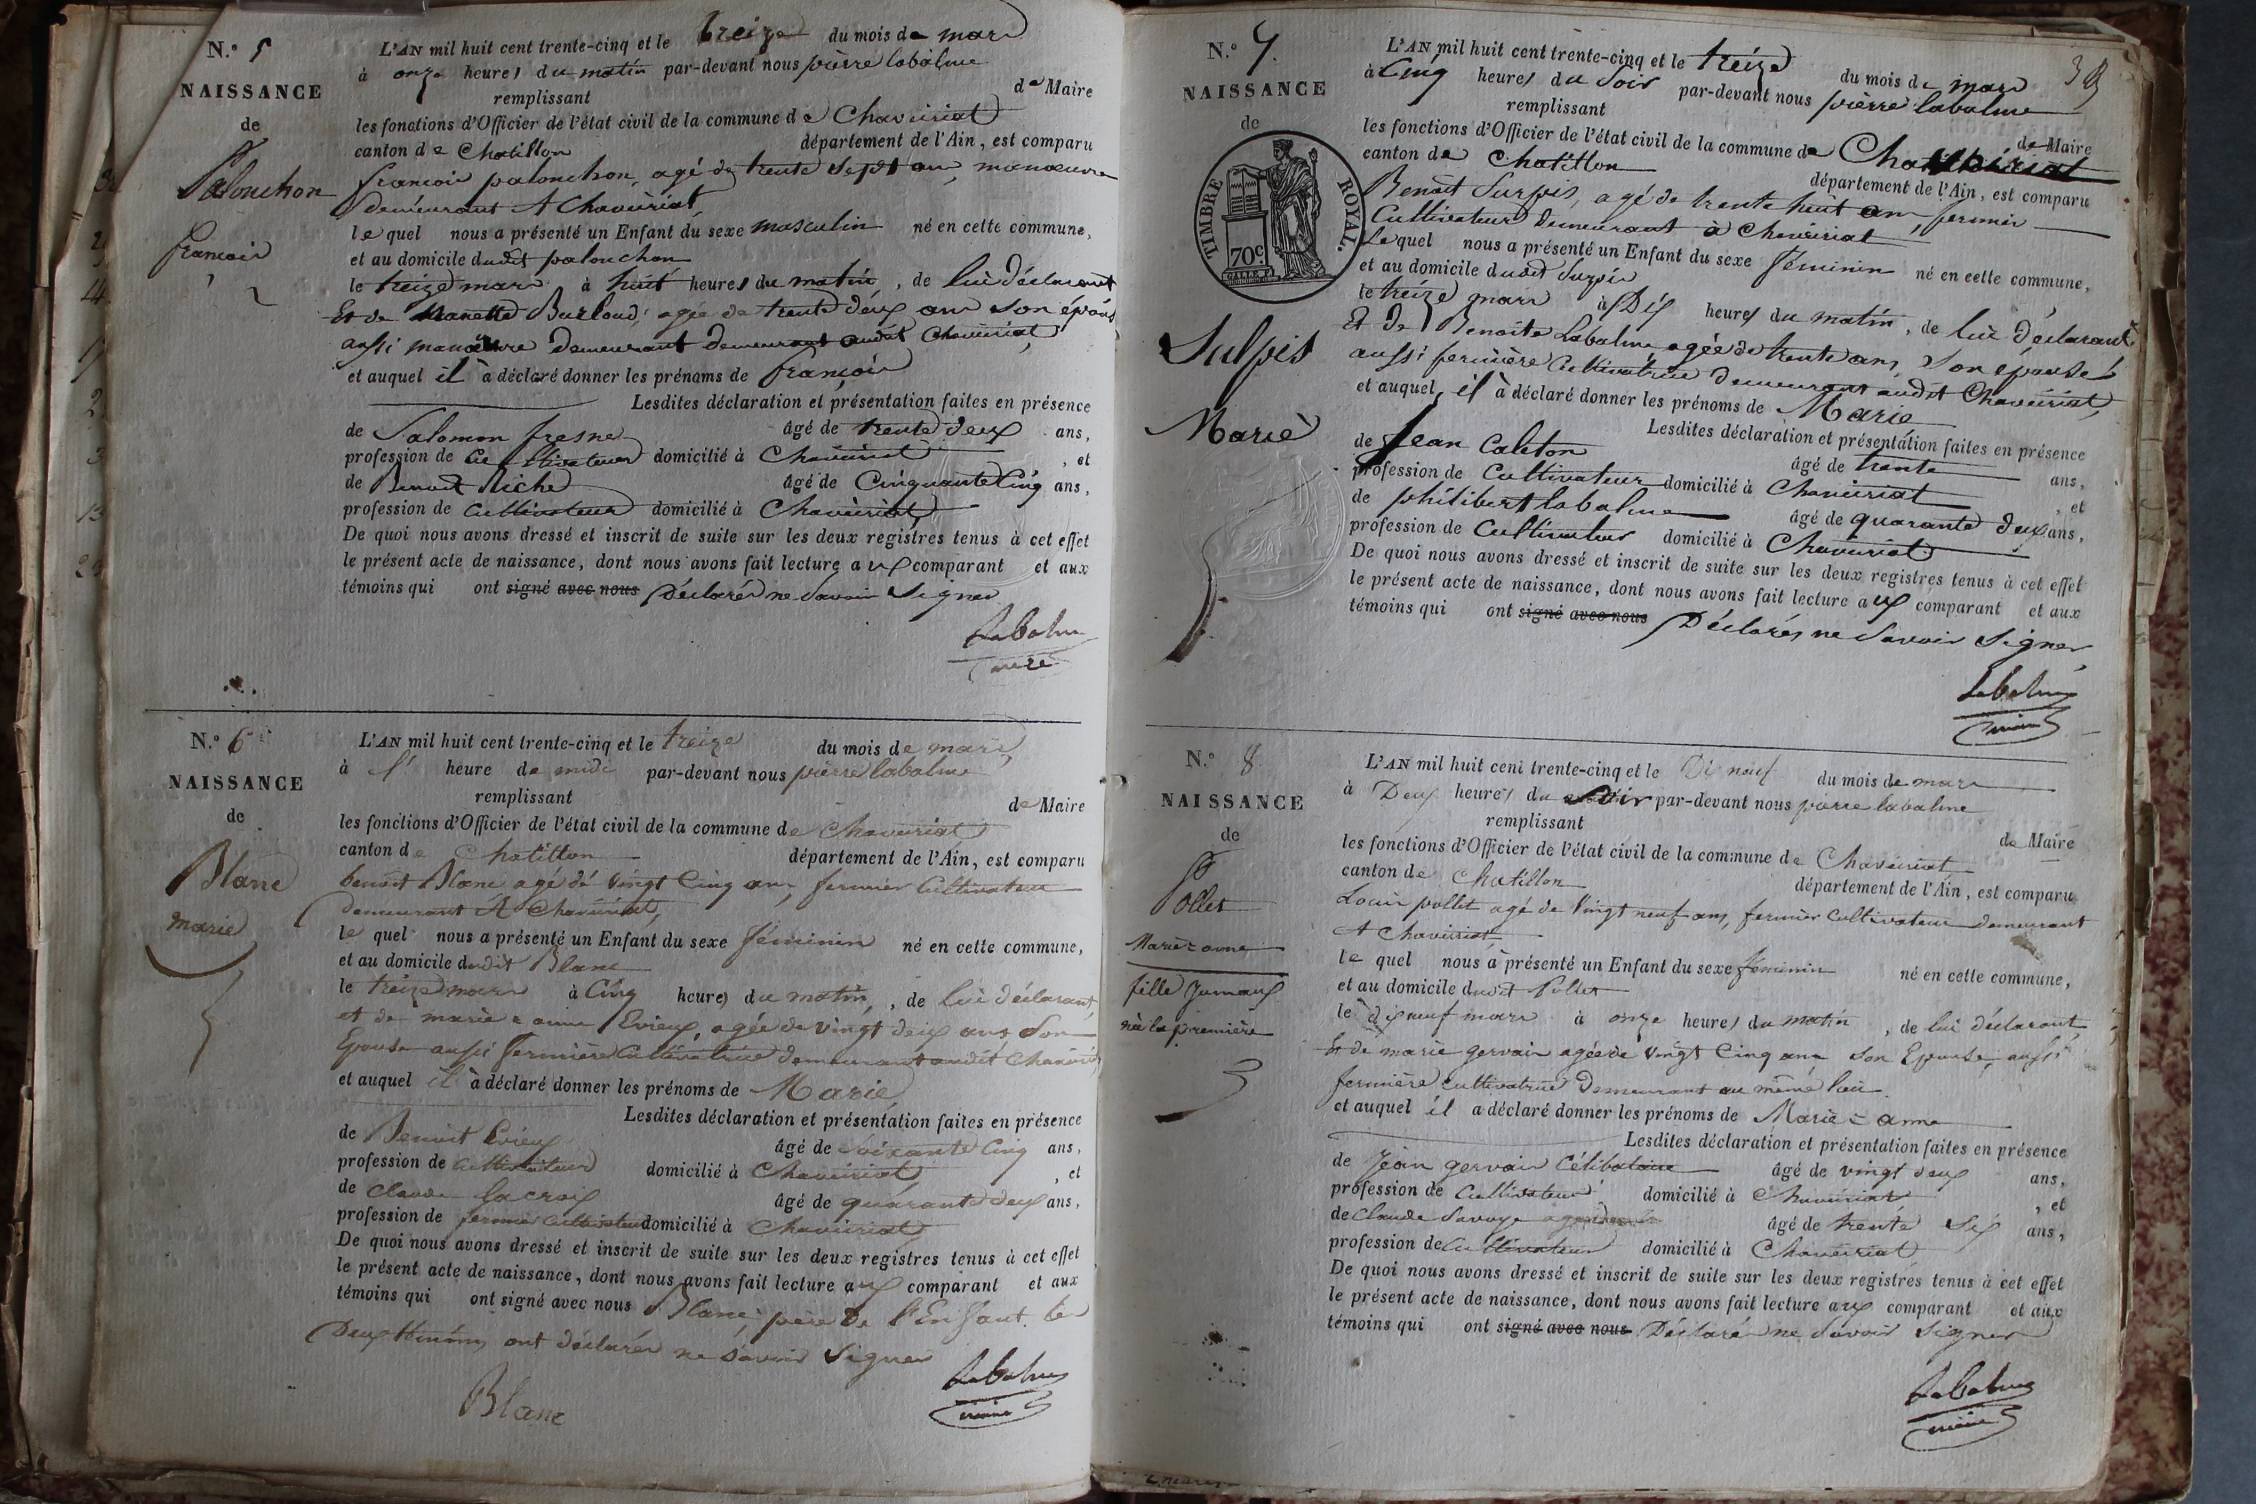 N.º 5
NAISSANCE
de
Palonchon
francois
L'AN mil huit cent trente-cinq et le treize du mois de mars
à onze heures du matin par-devant nous pierre labalme
remplissant de Maire
les fonctions d'Officier de l'état civil de la commune de Chaveiriat
canton de Chatillon département de l'Ain, est comparu
francois palonchon, agé de trente sept ans, manœuvre
demeurant A Chaveiriat,
lequel nous a présenté un Enfant du sexe masculin né en cette commune,
et au domicile dudit palonchon
le treize mars à huit heures du matin, de lui déclarant
Et de Burloud, agée de trente deux ans son épouse
aussi manœuvre demeurant demeurant audit Chaveiriat,
et auquel il à déclaré donner les prénoms de francois
Lesdites déclaration et présentation faites en présence
de Salomon fresne âgé de trente deux ans,
profession de cultivateur domicilié à Chaveiriat, et
de Benoit Riche âgé de Cinquante Cinq ans,
profession de cultivateur domicilié à Chaveiriat,
De quoi nous avons dressé et inscrit de suite sur les deux registres tenus à cet effet
le présent acte de naissance, dont nous avons fait lecture aux comparant et aux
témoins qui ont signé avec nous Déclarés ne Savoir Signer
Labalme
maire
N.º 6
NAISSANCE
de
Blanc
marie
L'AN mil huit cent trente-cinq et le treize du mois de mars,
à l' heure de midi par-devant nous pierre labalme
remplissant de Maire
les fonctions d'Officier de l'état civil de la commune de Chaveiriat
canton de Chatillon département de l'Ain, est comparu
benoit Blanc agé de vingt Cinq ans, fermier Cultivateur
demeurant A Chaveiriat,
le quel nous a présenté un Enfant du sexe féminin né en cette commune,
et au domicile dudit Blanc
le treize mars à Cinq heures du matin, de lui déclarant
et de marie = anne Evieux, agée de vingt deux ans Son
Epouse aussi fermière Cultivatrice demeurant audit Chaveiriat
et auquel il à déclaré donner les prénoms de Marie
Lesdites déclaration et présentation faites en présence
de Benoit Evieux âgé de Soixante Cinq ans,
profession de Cultivateur domicilié à Chaveiriat, et
de Claude lacroix âgé de quarante deux ans,
profession de fermier cultivateur domicilié à Chaveiriat
De quoi nous avons dressé et inscrit de suite sur les deux registres tenus à cet effet
le présent acte de naissance, dont nous avons fait lecture aux comparant et aux
témoins qui ont signé avec nous Blanc, père de l'Enfant. le
Deux témoins ont déclarés ne Savoir Signer
Blanc
Labalme
maire
N.º 7.
NAISSANCE
de
TIMBRE ROYAL.
70c.
Sulpis
Marie
L'AN mil huit cent trente-cinq et le treize du mois de mars
à Cinq heures du Soir par-devant nous pierre labalme
remplissant de Maire
les fonctions d'Officier de l'état civil de la commune de Chaveiriat
canton de Chatillon département de l'Ain, est comparu
Benoit Surpis, agé de trente huit ans, fermier
Cultivateur demeurant à Chaveiriat
Lequel nous a présenté un Enfant du sexe féminin né en cette commune,
et au domicile dudit Surpis
le treize mars à Dix heures du matin, de lui déclarant
Et De Benoite Labalme agée de trente ans, Son épouse
aussi fermière Cultivatrice demeurant audit Chaveiriat,
et auquel il à déclaré donner les prénoms de Marie
Lesdites déclaration et présentation faites en présence
de Jean Caleton âgé de trente ans,
profession de Cultivateur domicilié à Chaveiriat, et
de philibert labalme âgé de quarante deux ans,
profession de Cultivateur domicilié à Chaveiriat
De quoi nous avons dressé et inscrit de suite sur les deux registres tenus à cet effet
le présent acte de naissance, dont nous avons fait lecture aux comparant et aux
témoins qui ont signé avec nous Déclarés ne Savoir Signer
Labalme
maire
N.º 8
NAISSANCE
de
Pollet
Marie = anne
fille Jumaux
née la première
L'AN mil huit cent trente-cinq et le Dix neuf du mois de mars
à Deux heures du Soir par-devant nous pierre labalme
remplissant de Maire
les fonctions d'Officier de l'état civil de la commune de Chaveiriat
canton de Chatillon département de l'Ain, est comparu
Louis pollet agé de Vingt neuf ans, fermier cultivateur demeurant
A Chaveiriat
le quel nous à présenté un Enfant du sexe féminin né en cette commune,
et au domicile dudit Pollet
le dixneuf mars à onze heures du matin, de lui déclarant
Et de marie gervais agée de vingt Cinq ans Son Epouse, aussi
fermière cultivatrice Demeurant au même lieu.
et auquel il a déclaré donner les prénoms de Marie = anne
Lesdites déclaration et présentation faites en présence
de Jean gervais Célibataire âgé de vingt deux ans,
profession de Cultivateur domicilié à Chaveiriat, et
de Claude Savoye âgé de trente Six ans,
profession de Cultivateur domicilié à Chaveiriat
De quoi nous avons dressé et inscrit de suite sur les deux registres tenus à cet effet
le présent acte de naissance, dont nous avons fait lecture aux comparant et aux
témoins qui ont signé avec nous Déclaré ne Savoir Signer
Labalme
maire